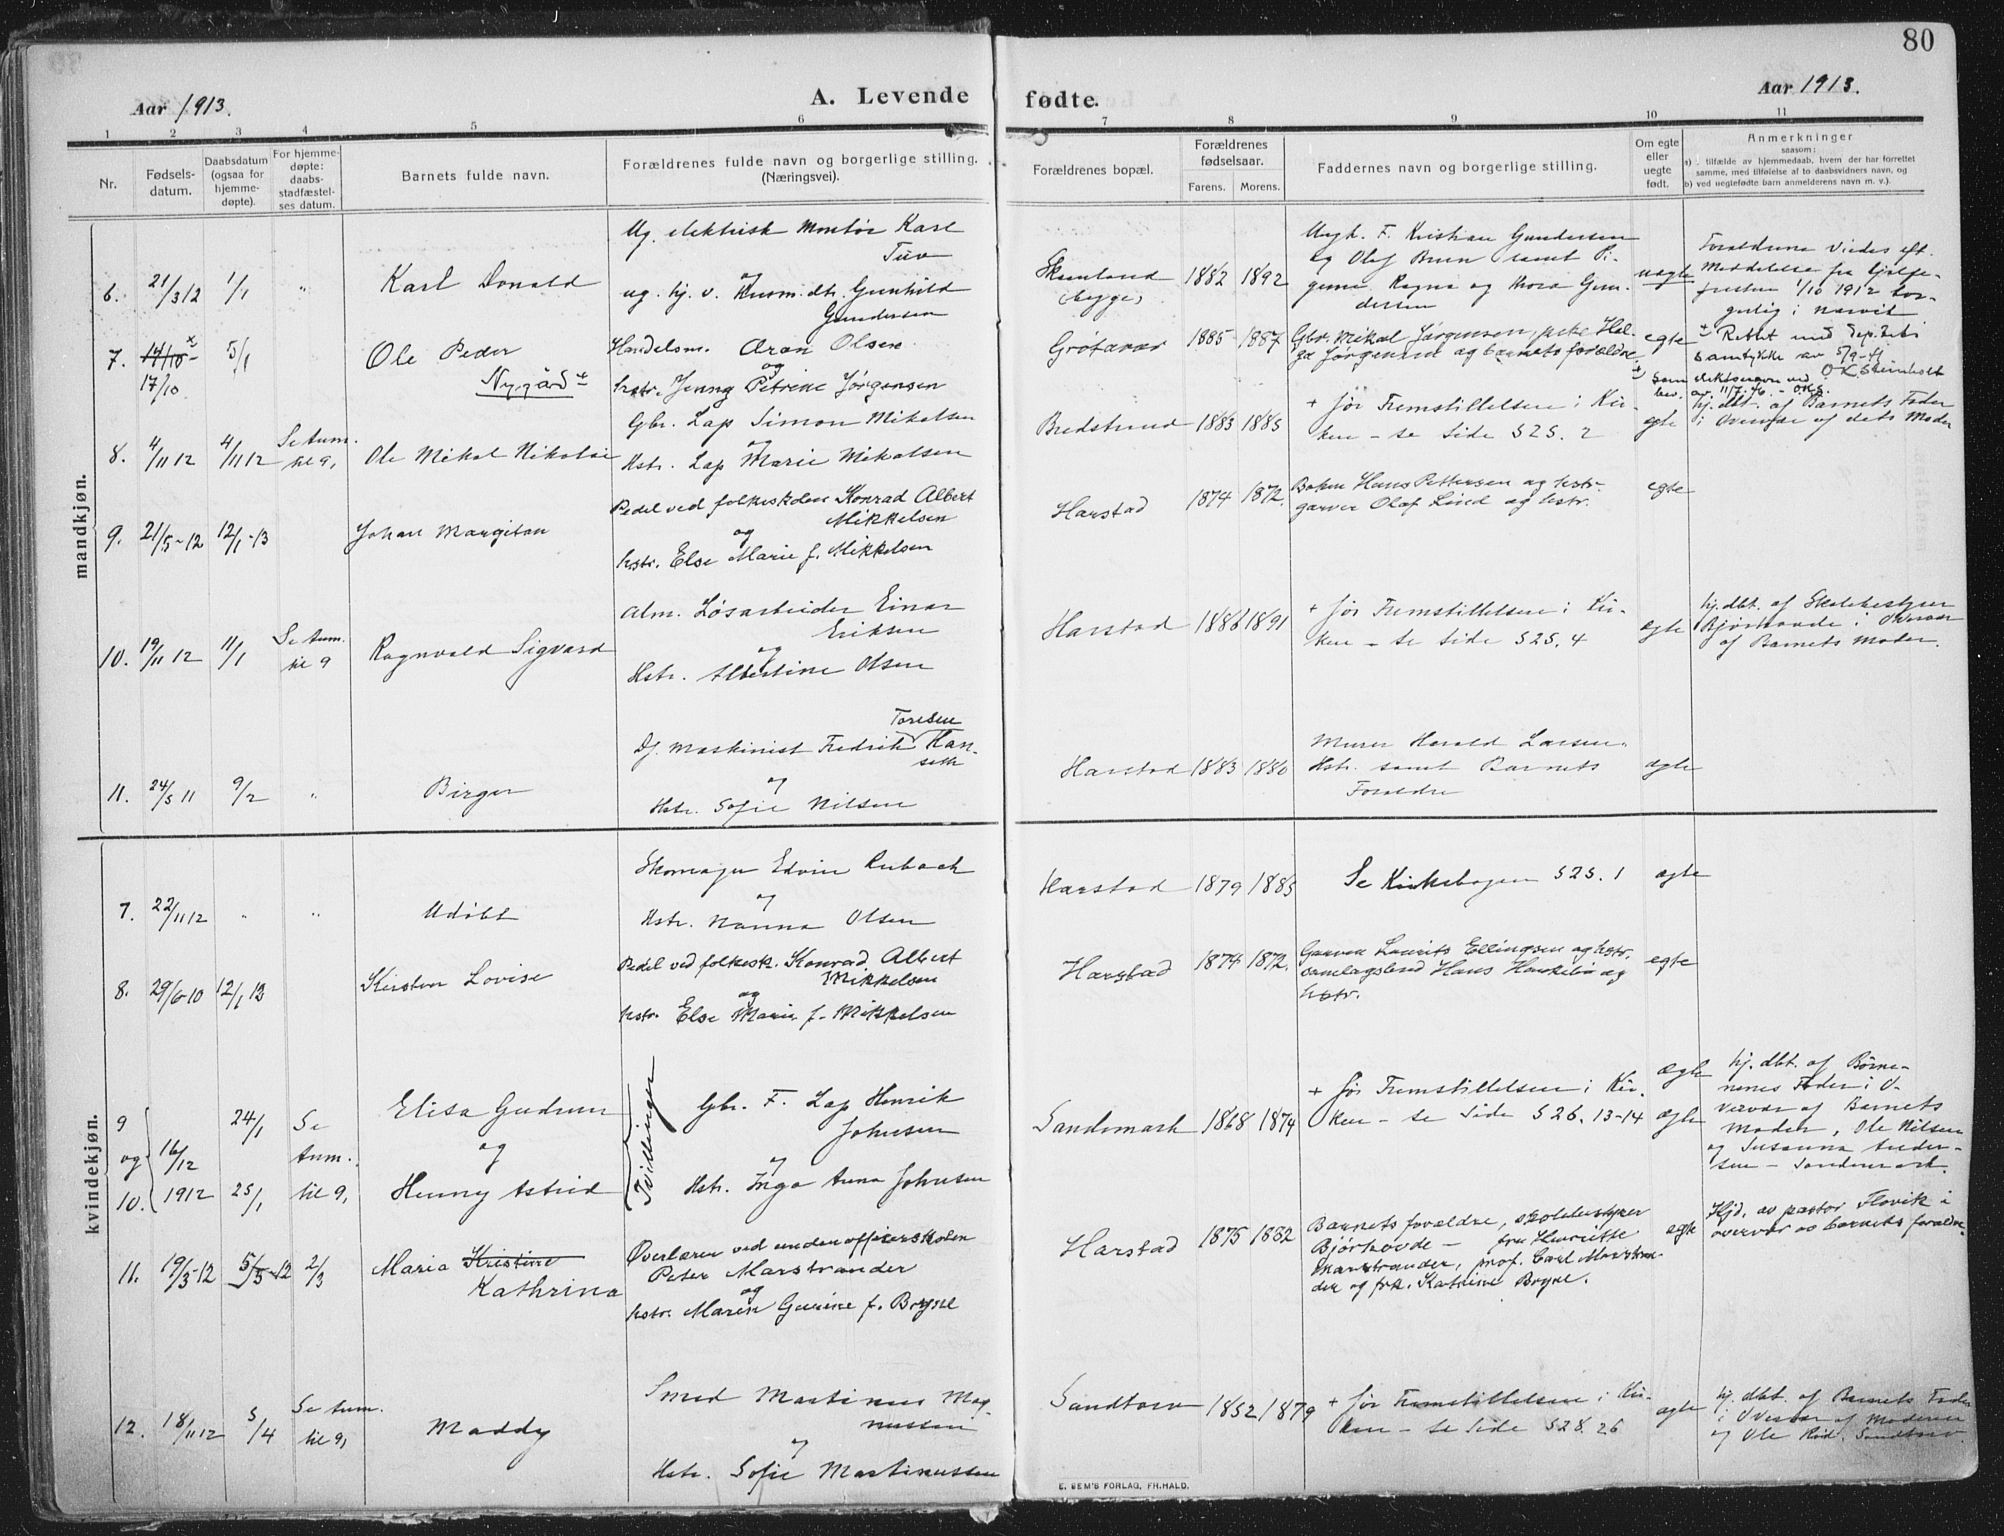 80
Aar 1913.
A. Levende
fødte.
Aar 1913.
1 2 3 4 5 6
7 8 9 10 11
Nr.
Fødsels-
datum.
Daabsdatum
(ogsaa for
hjemme-
døpte).
For hjemme-
døpte:
daabs-
stadfæstel-
ses datum.
Barnets fulde navn.
Forældrenes fulde navn og borgerlige stilling.
(Næringsvei).
Forældrenes bopæl.
Forældrenes
fødselsaar.
Farens. Morens.
Faddernes navn og borgerlige stilling.
Om egte
eller
uegte
født.
Anmerkninger
saasom:
a) i tilfælde av hjemmedaab, hvem der har forrettet
samme, med tilføielse af to daabsvidners navn, og
b) ved uegtefødte barn anmelderens navn m. v.).
mandkjøn.
6. 21/3 12 1/1 "
Karl Donald
Ug. elektrisk Montør Karl
Tuv
og
ug. hj. v. Husm.dtr. Gunhild
Gundersen
(begge)
1882 1892
Ungk. F. Kristian Gundersen
og Olaf Brun samt Pi-
gerne Ragna og Thora Gun-
dersen
uægte
Forældrene viedes eft.
Meddelelse fra
1/10 1912 bor-
gerlig i Narvik
7. 14/10 x 5/1
17/10
Ole Peder
Nygård +
Handelsm. Aron Olsen
og
hstr. Jenny Petrine Jørgensen
Grøtavær 1885 1887
Gbr. Mikal Jørgensen, pike Hel-
ga Jørgensen og barnets forældre
egte
+ Rettet med dep.tets
samtykke av 5/9-41
O.K. Steinholt
+ som slektsnavn ved
bev. av 11/7.46. - O.K.S.
8. 4/11 12 4/11 12 Se Anm.
til 9,
Ole Mikal Nikolai
Gbr. Lap Simon Mikalsen
og
Hstr. Lap Marie Mikalsen
Bredstrand 1883 1885
+ før Fremstillelsen i Kir-
ken - se Side 525. 2
egte
hj. dbt. af Barnets Fader
i Overvær af dets Moder
9. 21/5-12 12/1-13
Johan Margiton
Pedel ved folkeskolen Konrad Albert
Mikkelsen
og
hstr. Else Marie f. Mikkelsen
Harstad 1874 1872.
Baker Hans Pettersen og hstr.
garver Olaf Lind og hstr.
egte
10. 19/11 12 11/1 Se Anm.
til 9
Ragnvald Sigvard
Alm. Løsarbeider Einar
Eriksen
og
Hstr. Albertine Olsen
Harstad 1886 1891
+ før Fremstillelsen i Kir-
ken - se Side 525. 4
ægte
hj. dbt. af Skolebestyrer
Bjørhovde i Overvær
af Barnets Moder.
11. 24/5 11 9/2 "
Birger
Toresen
Df. Maskinist Fredrik Han-
seth
og
Hstr. Sofie Nilsen
Harstad 1883 1880
Murer Harald Larsen.
Hstr. samt Barnets
Forældre
ægte
kvindekjøn.
7. 22/11 12 " "
Udøbt
Skomager Edvin Rubach
og
Hstr. Nanna Olsen
Harstad 1879 1885
Se Kirkebogen 525. 1
ægte
8. 29/6-10 12/1 13
Kirsten Lovise
Pedel ved folkesk. Konrad Albert
Mikkelsen
og
hstr. Else Marie f. Mikkelsen
Harstad 1874 1872.
Garver Laurits Ellingsen og hstr.
Hans og
hstr.
egte
9
og
10.
16/12
1912
24/1
25/1
Se
Anm.
til 9,
Elisa Gudrun
og
Henny Astrid
Tvillinger
Gbr. F. Lap Henrik
Johnsen
og
Hstr. Inga Anna Johnsen
Sandemark 1868 1874
+ før Fremstillelsen i Kir-
ken - se Side 526. 13-14
ægte
ægte
hj. dbt. af Børne-
nenes Fader i O-
vervær af Barnets
Moder, Ole Nilsen
og Susanna Ander-
sen - Sandemark.
11. 19/3-12 5/5-12 2/3
Maria Kristine
Kathrina
Overlærer ved underofficerskolen
Peter Marstrander
og
hstr. Maren Gurine f. Bryne
Harstad 1875 1882
Barnets forældre, skolebestyrer
Bjørhovde - fru Henriette
Marstrander, prof. Carl Marstran-
der og frk. Katrine Bryne.
egte
Hjd. av pastor Flovik i
overvær av barnets forældre.
12. 18/11 12 5/4 Se Anm.
til 9,
Maddy
Smed Martinus Mag-
nussen
og
Hstr. Sofie Martinussen
Sandtorv 1852 1879
+ før Fremstillelsen i Kir-
ken - se Side 528. 26
ægte
hj. dbt. af Barnets Fader
i Overvær af Moderen
og Ole Rød. Sandtorv.
E. SEM'S FORLAG, FR.HALD.